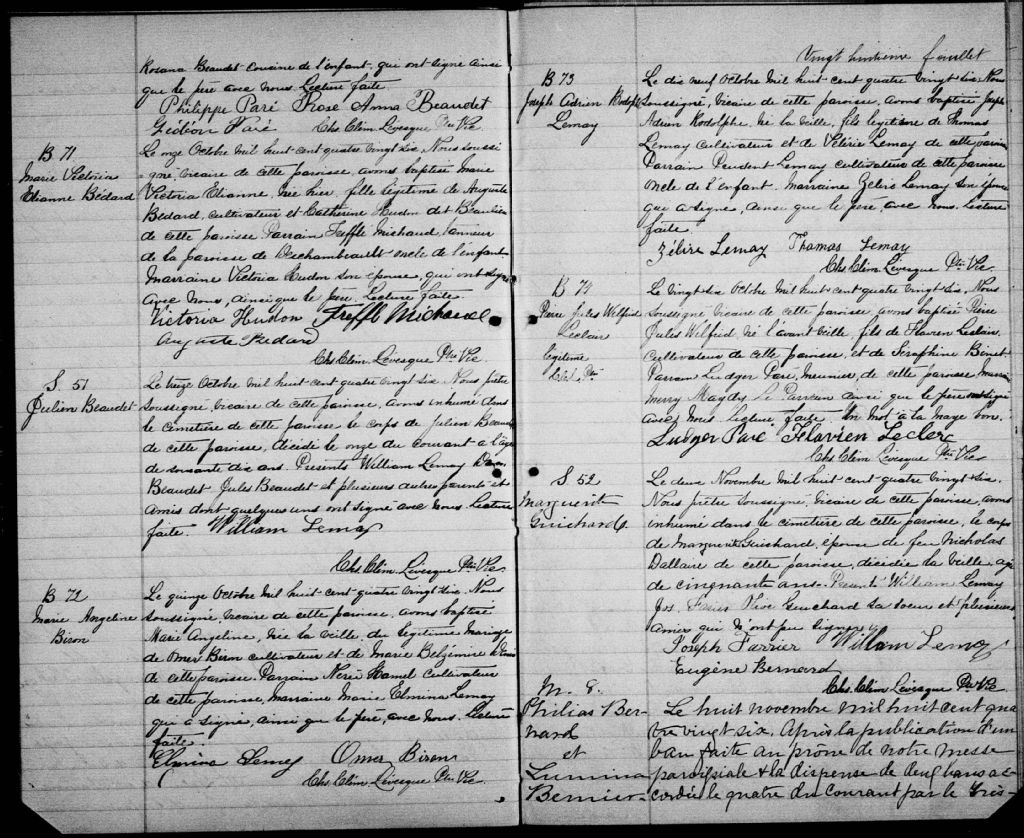 Rosana Beaudet cousine de l'enfant, qui ont signé ainsi
que le père avec nous. Lecture faite
Philippe Paré Rose Anna Beaudet
Gédéon Paré Chs Clém. Lévesque Ptre Vic
B 71
Marie Victoria
Etianne Bédard
Le onze Octobre mil huit cent quatre vingt six Nous soussi
gné, vicaire de cette paroisse, avons baptisé Marie
Victoria Etianne, née hier, fille légitime de Auguste
Bédard, cultivateur et Catherine Hudon dit Beaulieu
de cette paroisse. Parrain Treffle Michaud tanneur
de la paroisse de Deschambeault oncle de l'enfant
Marraine Victoria Hudon son épouse, qui ont signé
avec nous, ainsi que le père. Lecture faite.
Victoria Hudon Treffle Michaud
Auguste Bédard
Chs Clém. Lévesque Ptre Vic.
S. 51
Julien Beaudet
Le treize Octobre mil huit cent quatre vingt six Nous prêtre
soussigné, vicaire de cette paroisse, avons inhumé dans
le cimetière de cette paroisse le corps de Julien Beaudet
de cette paroisse, décédé le onze du courant à l'âge
de soixante dix ans. Présents William Lemay
Beaudet Jules Beaudet et plusieurs autres parents et
amis dont quelques uns ont signé avec nous. Lecture
faite. William Lemay
Chs Clém. Lévesque Ptre Vic
B 72
Marie Angeline
Biron
Le quinze Octobre mil huit cent quatre vingt six. Nous
soussigné, vicaire de cette paroisse, avons baptisé
Marie Angeline, née la veille, du légitime mariage
de Omer Biron cultivateur et de Marie Belzémire
de cette paroisse. Parrain Néré Hamel cultivateur
de cette paroisse, marraine Marie Elmina Lemay
qui a signé, ainsi que le père, avec nous. Lecture
faite.
Elmina Lemay Omer Biron
Chs Clém. Lévesque Ptre Vic
Vingt huitième feuillet
B 73
Joseph Adrien Rodolphe
Lemay
Le dix neuf Octobre mil huit cent quatre vingt six. Nous
soussigné, vicaire de cette paroisse, avons baptisé Joseph
Adrien Rodolphe, né la veille, fils légitime de Thomas
Lemay cultivateur et de Valérie Lemay de cette paroisse
Parrain Prudent Lemay cultivateur de cette paroisse
oncle de l'enfant. Marraine Zélire Lemay son épouse
qui a signé, ainsi que le père, avec nous. Lecture
faite.
Zélire Lemay Thomas Lemay
Chs Clém. Lévesque Ptre Vic
B 74
Pierre Jules Wilfrid
Leclair
légitime
Le vingt six Octobre mil huit cent quatre vingt six. Nous
soussigné vicaire de cette paroisse avons baptisé Pierre
Jules Wilfrid, né l'avant veille, fils de Flavien Leclair,
cultivateur de cette paroisse, et de Séraphine Binet
Parrain Ludger Paré, Meunier, de cette paroisse
Merry Le Parrain ainsi que le père
avec nous Lecture faite. Un mot à la marge bon.
Ludger Paré Flavien Leclerc
Chs Clém. Lévesque Ptre Vic
S 52
Marguerite
Guichard
Le deux Novembre mil huit cent quatre vingt six.
Nous prêtre soussigné, vicaire de cette paroisse, avons
inhumé dans le cimetière de cette paroisse, le corps
de Marguerite Guichard, épouse de feu Nicholas
Dallaire de cette paroisse, décédée la veille âgée
de cinquante ans. Présents William Lemay
Jos. Olive Guichard sa soeur et plusieurs
amis qui n'ont pu signer
Joseph Farrier William Lemay
Eugène Bernard
Chs. Clém. Lévesque Ptre Vic
M. 8.
Philias Ber-
nard
et
Lumina
Bernier
Le huit novembre mil huit cent qua
tre vingt six. Après la publication d'un
ban faite au prône de notre messe
paroissiale & la dispense de deux bans ac-
cordée le quatre du courant par le Très-